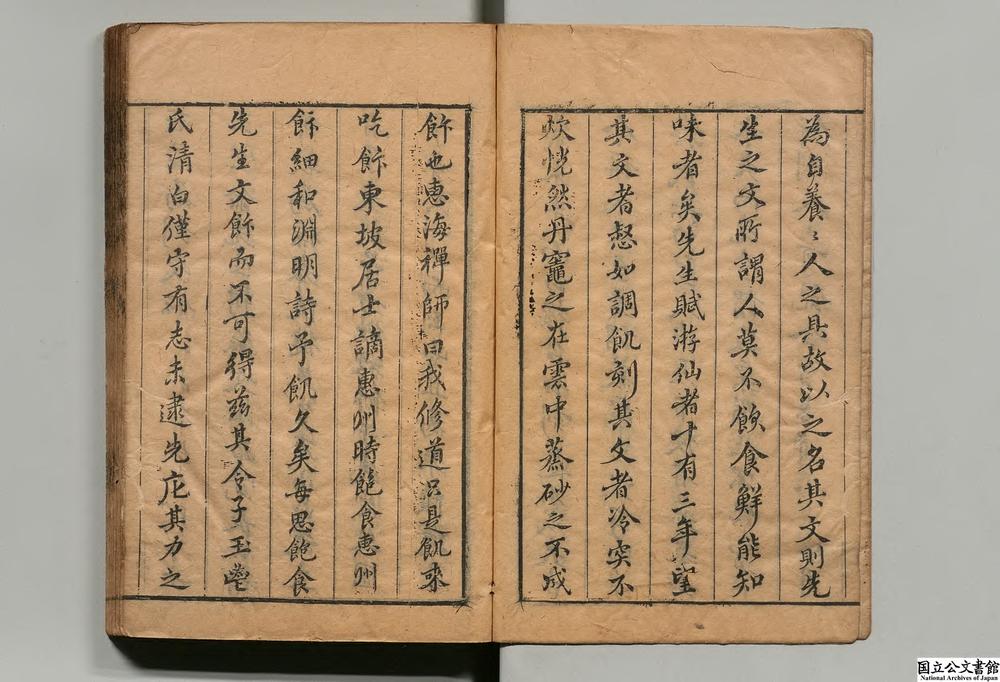 為自養〻人之具故以之名其文則先
生之文所謂人莫不飲食鮮能知
味者矣先生賦游仙者十有三年望
其文者惄如調飢刻其文者冷突不
炊恍然丹竈之在雲中蒸砂之不成
飰也惠海禪師曰我修道只是飢来
吃飰東坡居士謫惠州時飽食惠州
飰細和淵明詩予飢久矣每思飽食
先生文飰而不可得茲其令子玉
氏清白僅守有志未逮先庀其力之
国立公文書館
National Archives of Japan